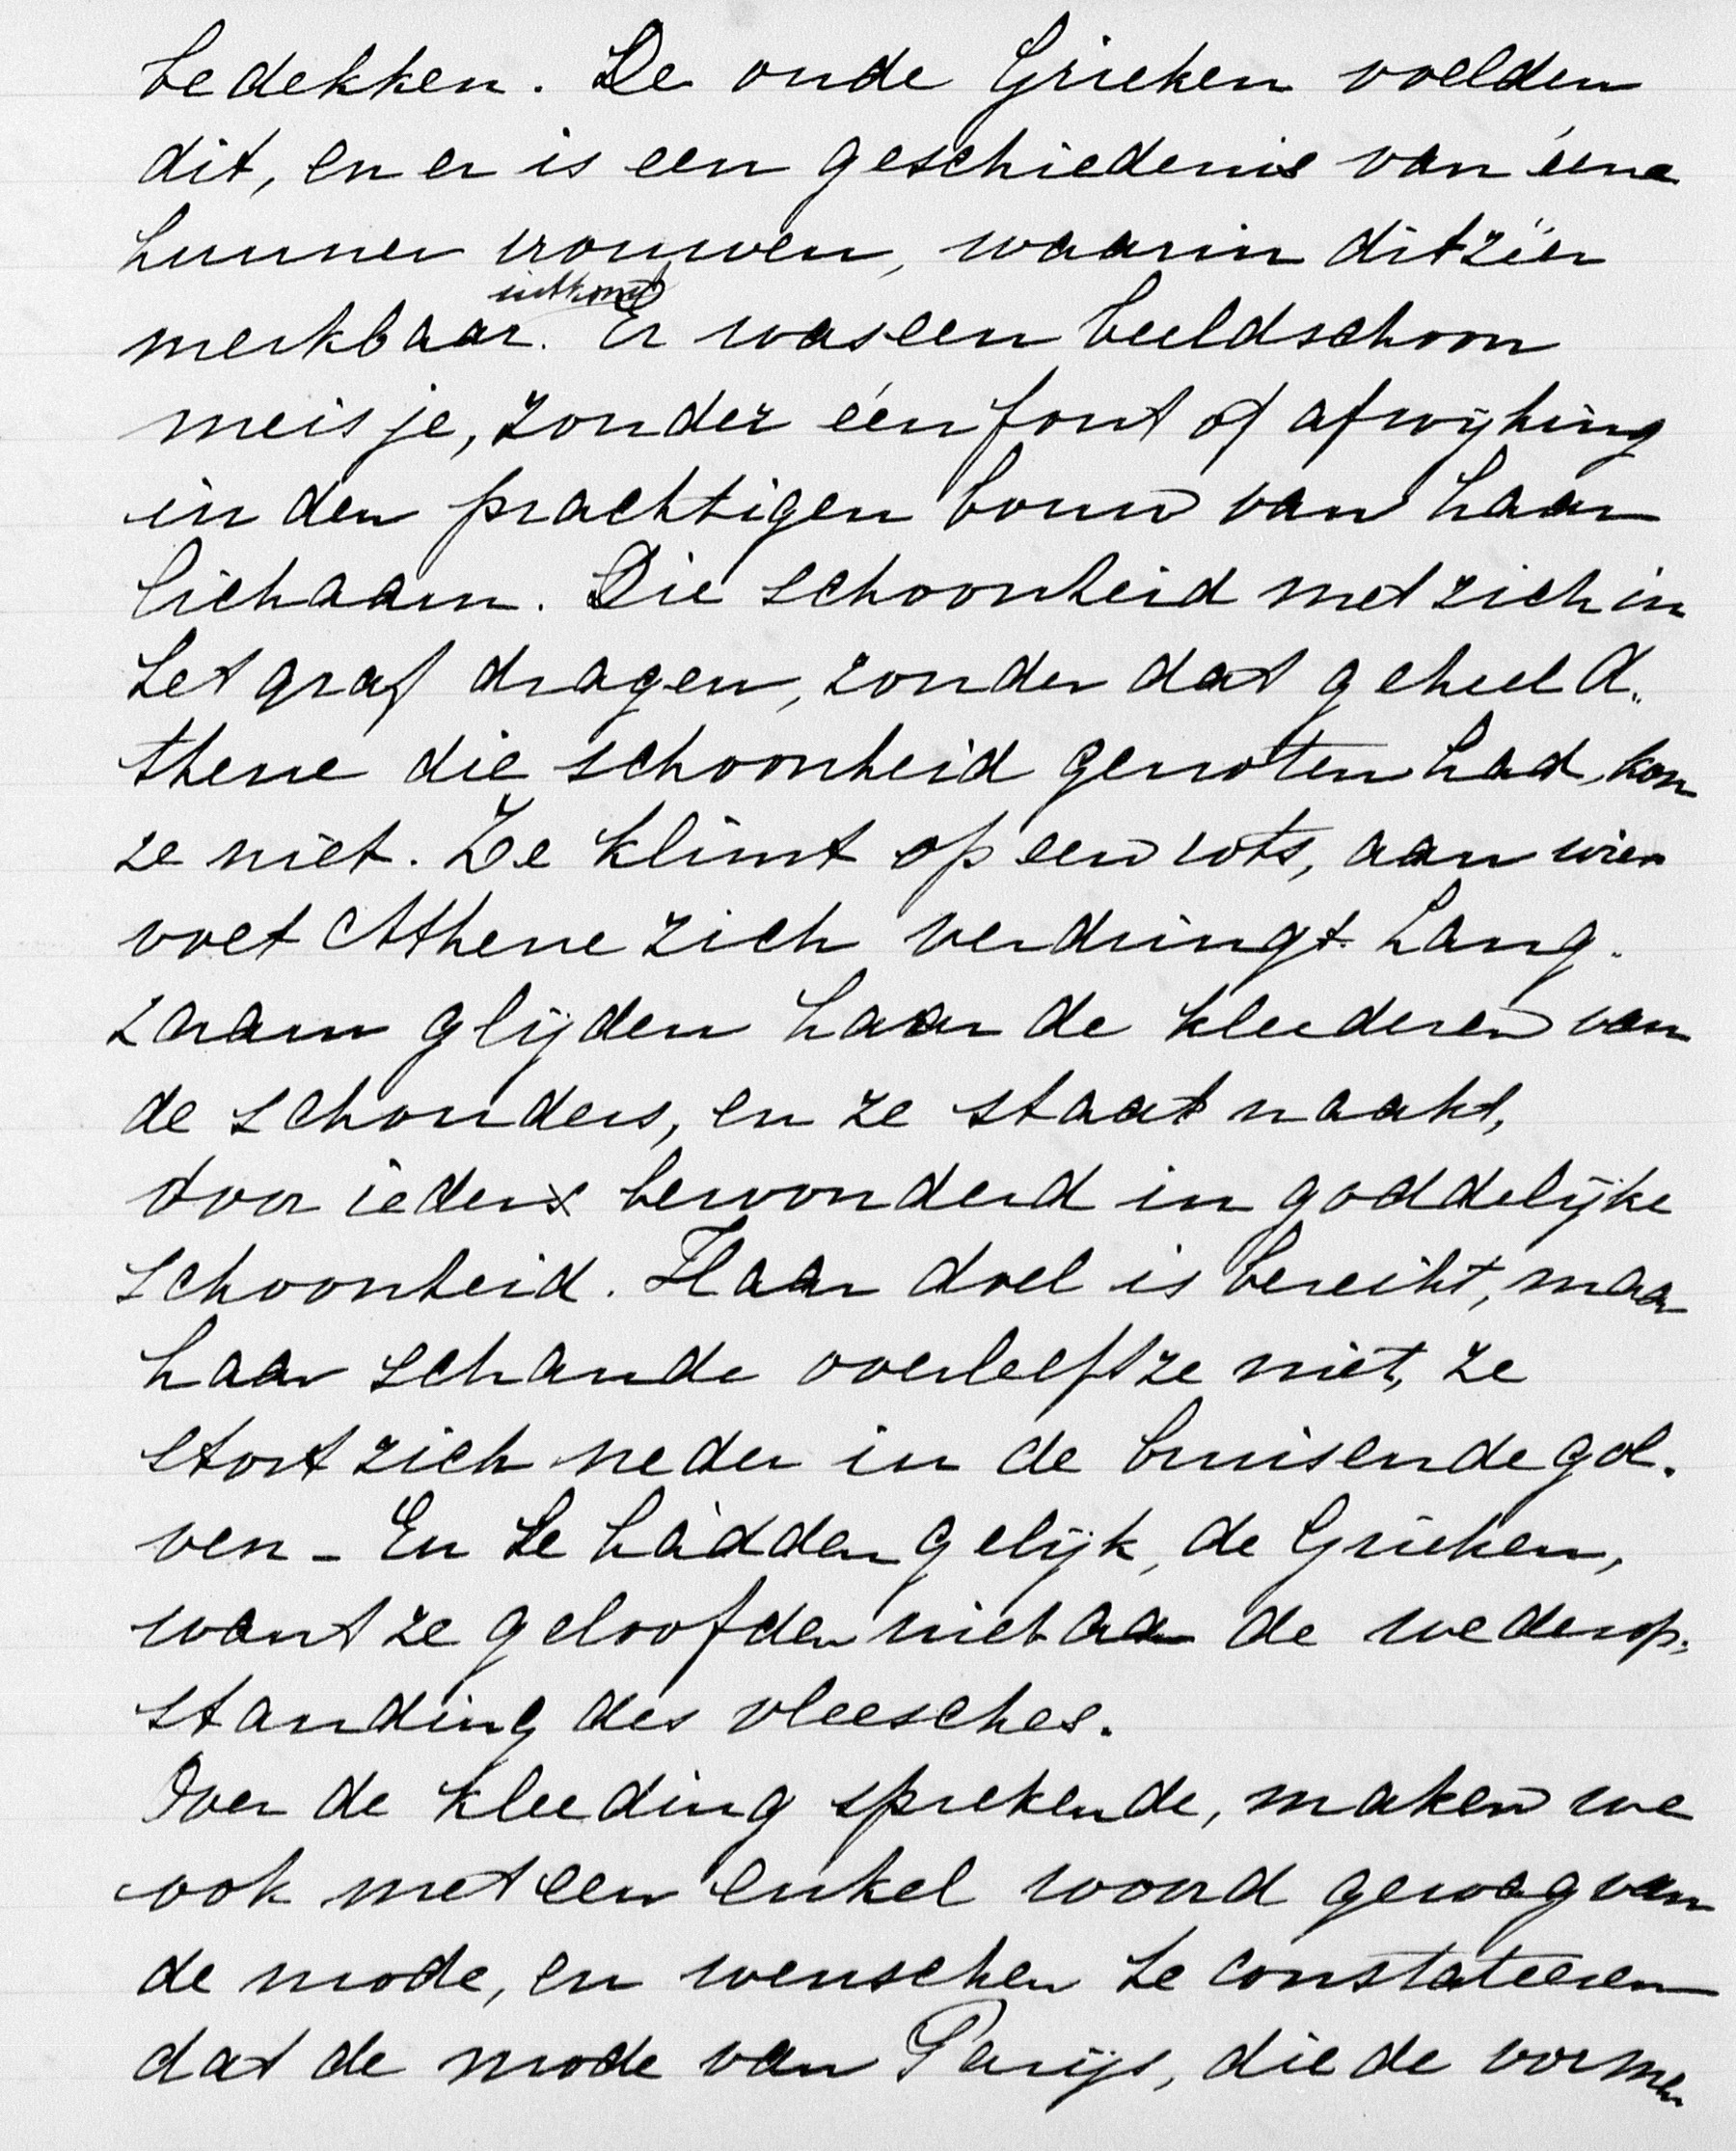 bedekken. De oude Grieken voelden
dit, en er is een geschiedenis van ééne
hunner vrouwen, waarin dit zéér
uitkomt
merkbaar. Er was een beeldschoon
meisje, zonder één fout of afwijking
in den prachtigen bouw van haar
lichaam. Die schoonheid met zich in
het graf dragen, zonder dat geheel A„
thene die schoonheid genoten had, kon
ze niet. Ze klimt op een rots, aan wier
voet Athene zich verdringt. Lang„
zaam glijden haar de kleederen van
de schouders, en ze staat naakt,
door ieder bewonderd in goddelijke
schoonheid. Haar doel is bereikt, maar
haar schande overleeft ze niet, ze
stort zich neder in de bruisende gol„
ven – En ze hádden gelijk, de Grieken,
want ze geloofden niet aan de wederop„
standing des vleesches.
Over de kleeding sprekende, maken we
ook met een enkel woord gewag van
de mode, en wenschen te constateeren
dat de mode van Parijs, die de vormen